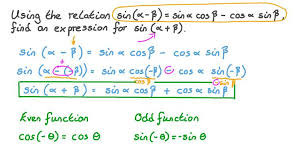 Using the relation sin(α-β) = sin α cos β - cos α sin β,
find an expression for sin(α+β).
sin (α - β) = sin α cos β - cos α sin β
+
sin (α - (-β)) = sin α cos(-β) ⊖ cos α sin(-β)
cos β ⊖ sin β
sin (α + β) = sin α cos β + cos α sin β
Even function Odd function
cos(-θ) = cos θ sin(-θ) = -sin θ